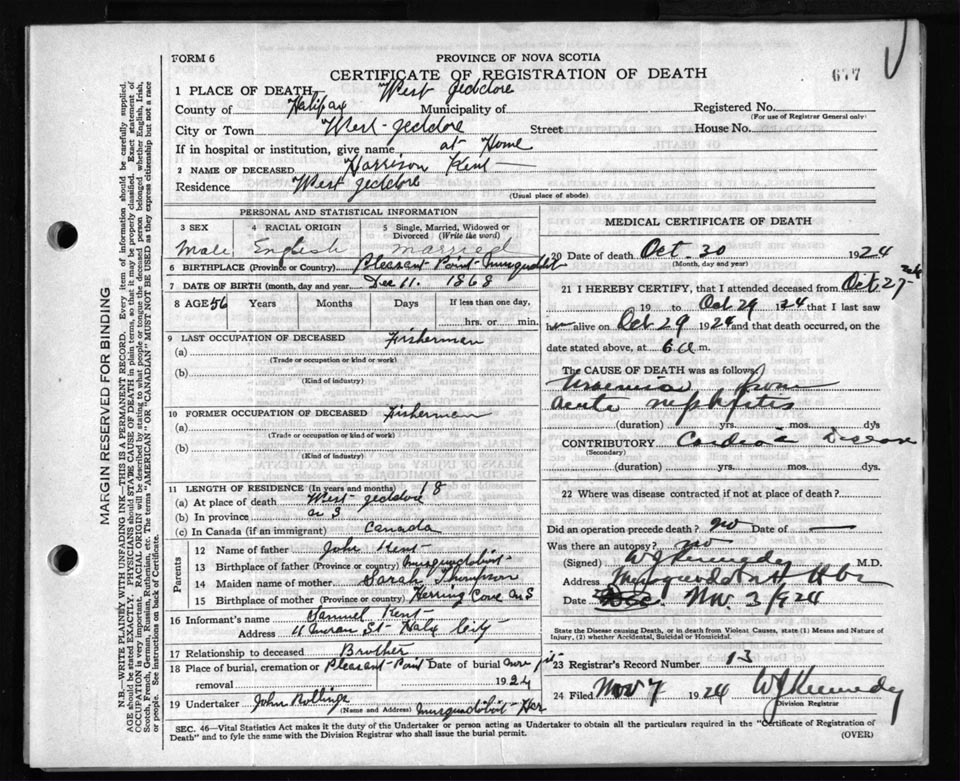 FORM 6
PROVINCE OF NOVA SCOTIA
CERTIFICATE OF REGISTRATION OF DEATH
677
1 PLACE OF DEATH West Jeddore
County of Halifax Municipality of
Registered No.
(For use of Registrar General only)
City or Town West-Jeddore Street House No.
If in hospital or institution, give name at Home
2 NAME OF DECEASED Harrison Kent
Residence West Jeddore
(Usual place of abode)
PERSONAL AND STATISTICAL INFORMATION
3 SEX 4 RACIAL ORIGIN 5 Single, Married, Widowed or Divorced (Write the word)
Male English married
6 BIRTHPLACE (Province or Country) Pleasant Point Musquodoboit
7 DATE OF BIRTH (month, day and year) Dec 11. 1868
8 AGE 56 Years Months Days If less than one day,
hrs. or min.
9 LAST OCCUPATION OF DECEASED Fisherman
(a)
(Trade or occupation or kind or work)
(b)
(Kind of industry)
10 FORMER OCCUPATION OF DECEASED Fisherman
(a)
(Trade or occupation or kind of work)
(b)
(Kind of industry)
11 LENGTH OF RESIDENCE (In years and months) 18
(a) At place of death West-Jeddore
(b) In province N S
(c) In Canada (if an immigrant) Canada
Parents
12 Name of father John Kent
13 Birthplace of father (Province or country) Musquodoboit
14 Maiden name of mother Sarah Thompson
15 Birthplace of mother (Province or Country) Herring Cove N S
16 Informant's name Samuel Kent
Address 11 St- Halx City
17 Relationship to deceased Brother
18 Place of burial, cremation or removal Pleasant-Point Date of burial 1924
19 Undertaker John Rollings
(Name and Address) Musquodoboit-Har
MEDICAL CERTIFICATE OF DEATH
20 Date of death Oct. 30 1924
(Month, day and year)
21 I HEREBY CERTIFY, that I attended deceased from Oct 27
19 to Oct 29 1924 that I last saw
him alive on Oct 29 1924 and that death occurred, on the
date stated above, at 6 a m.
The CAUSE OF DEATH was as follows:
Uraemia from
acute nephritis
(duration) yrs. mos. dy's
CONTRIBUTORY Cardiac Disease
(Secondary)
(duration) yrs. mos. dys.
22 Where was disease contracted if not at place of death?
Did an operation precede death? no Date of —
Was there an autopsy? no
(Signed) W J Kennedy M.D.
Address Musquodoboit Hbr
Date Nov. 3/924
State the Disease causing Death, or in death from Violent Causes, state (1) Means and Nature of
Injury, (2) whether Accidental, Suicidal or Homicidal.
23 Registrar's Record Number 13
24 Filed Nov 7 1924 W J Kennedy
Division Registrar
SEC. 46—Vital Statistics Act makes it the duty of the Undertaker or person acting as Undertaker to obtain all the particulars required in the "Certificate of Registration of
Death" and to fyle the same with the Division Registrar who shall issue the burial permit.
(OVER)
MARGIN RESERVED FOR BINDING
N.B.—WRITE PLAINLY WITH UNFADING INK—THIS IS A PERMANENT RECORD. Every item of information should be carefully supplied.
AGE should be stated EXACTLY. PHYSICIANS should STATE CAUSE OF DEATH in plain terms, so that it may be properly classified. Exact statement of
OCCUPATION is very important. RACIAL ORIGIN will be described by stating to what people or tongue the deceased person belonged whether English, Irish,
Scotch, French, German, Russian, Ruthenian, etc. The terms "AMERICAN" OR "CANADIAN" MUST NOT BE USED as they express citizenship but not a race
or people. See instructions on back of Certificate.